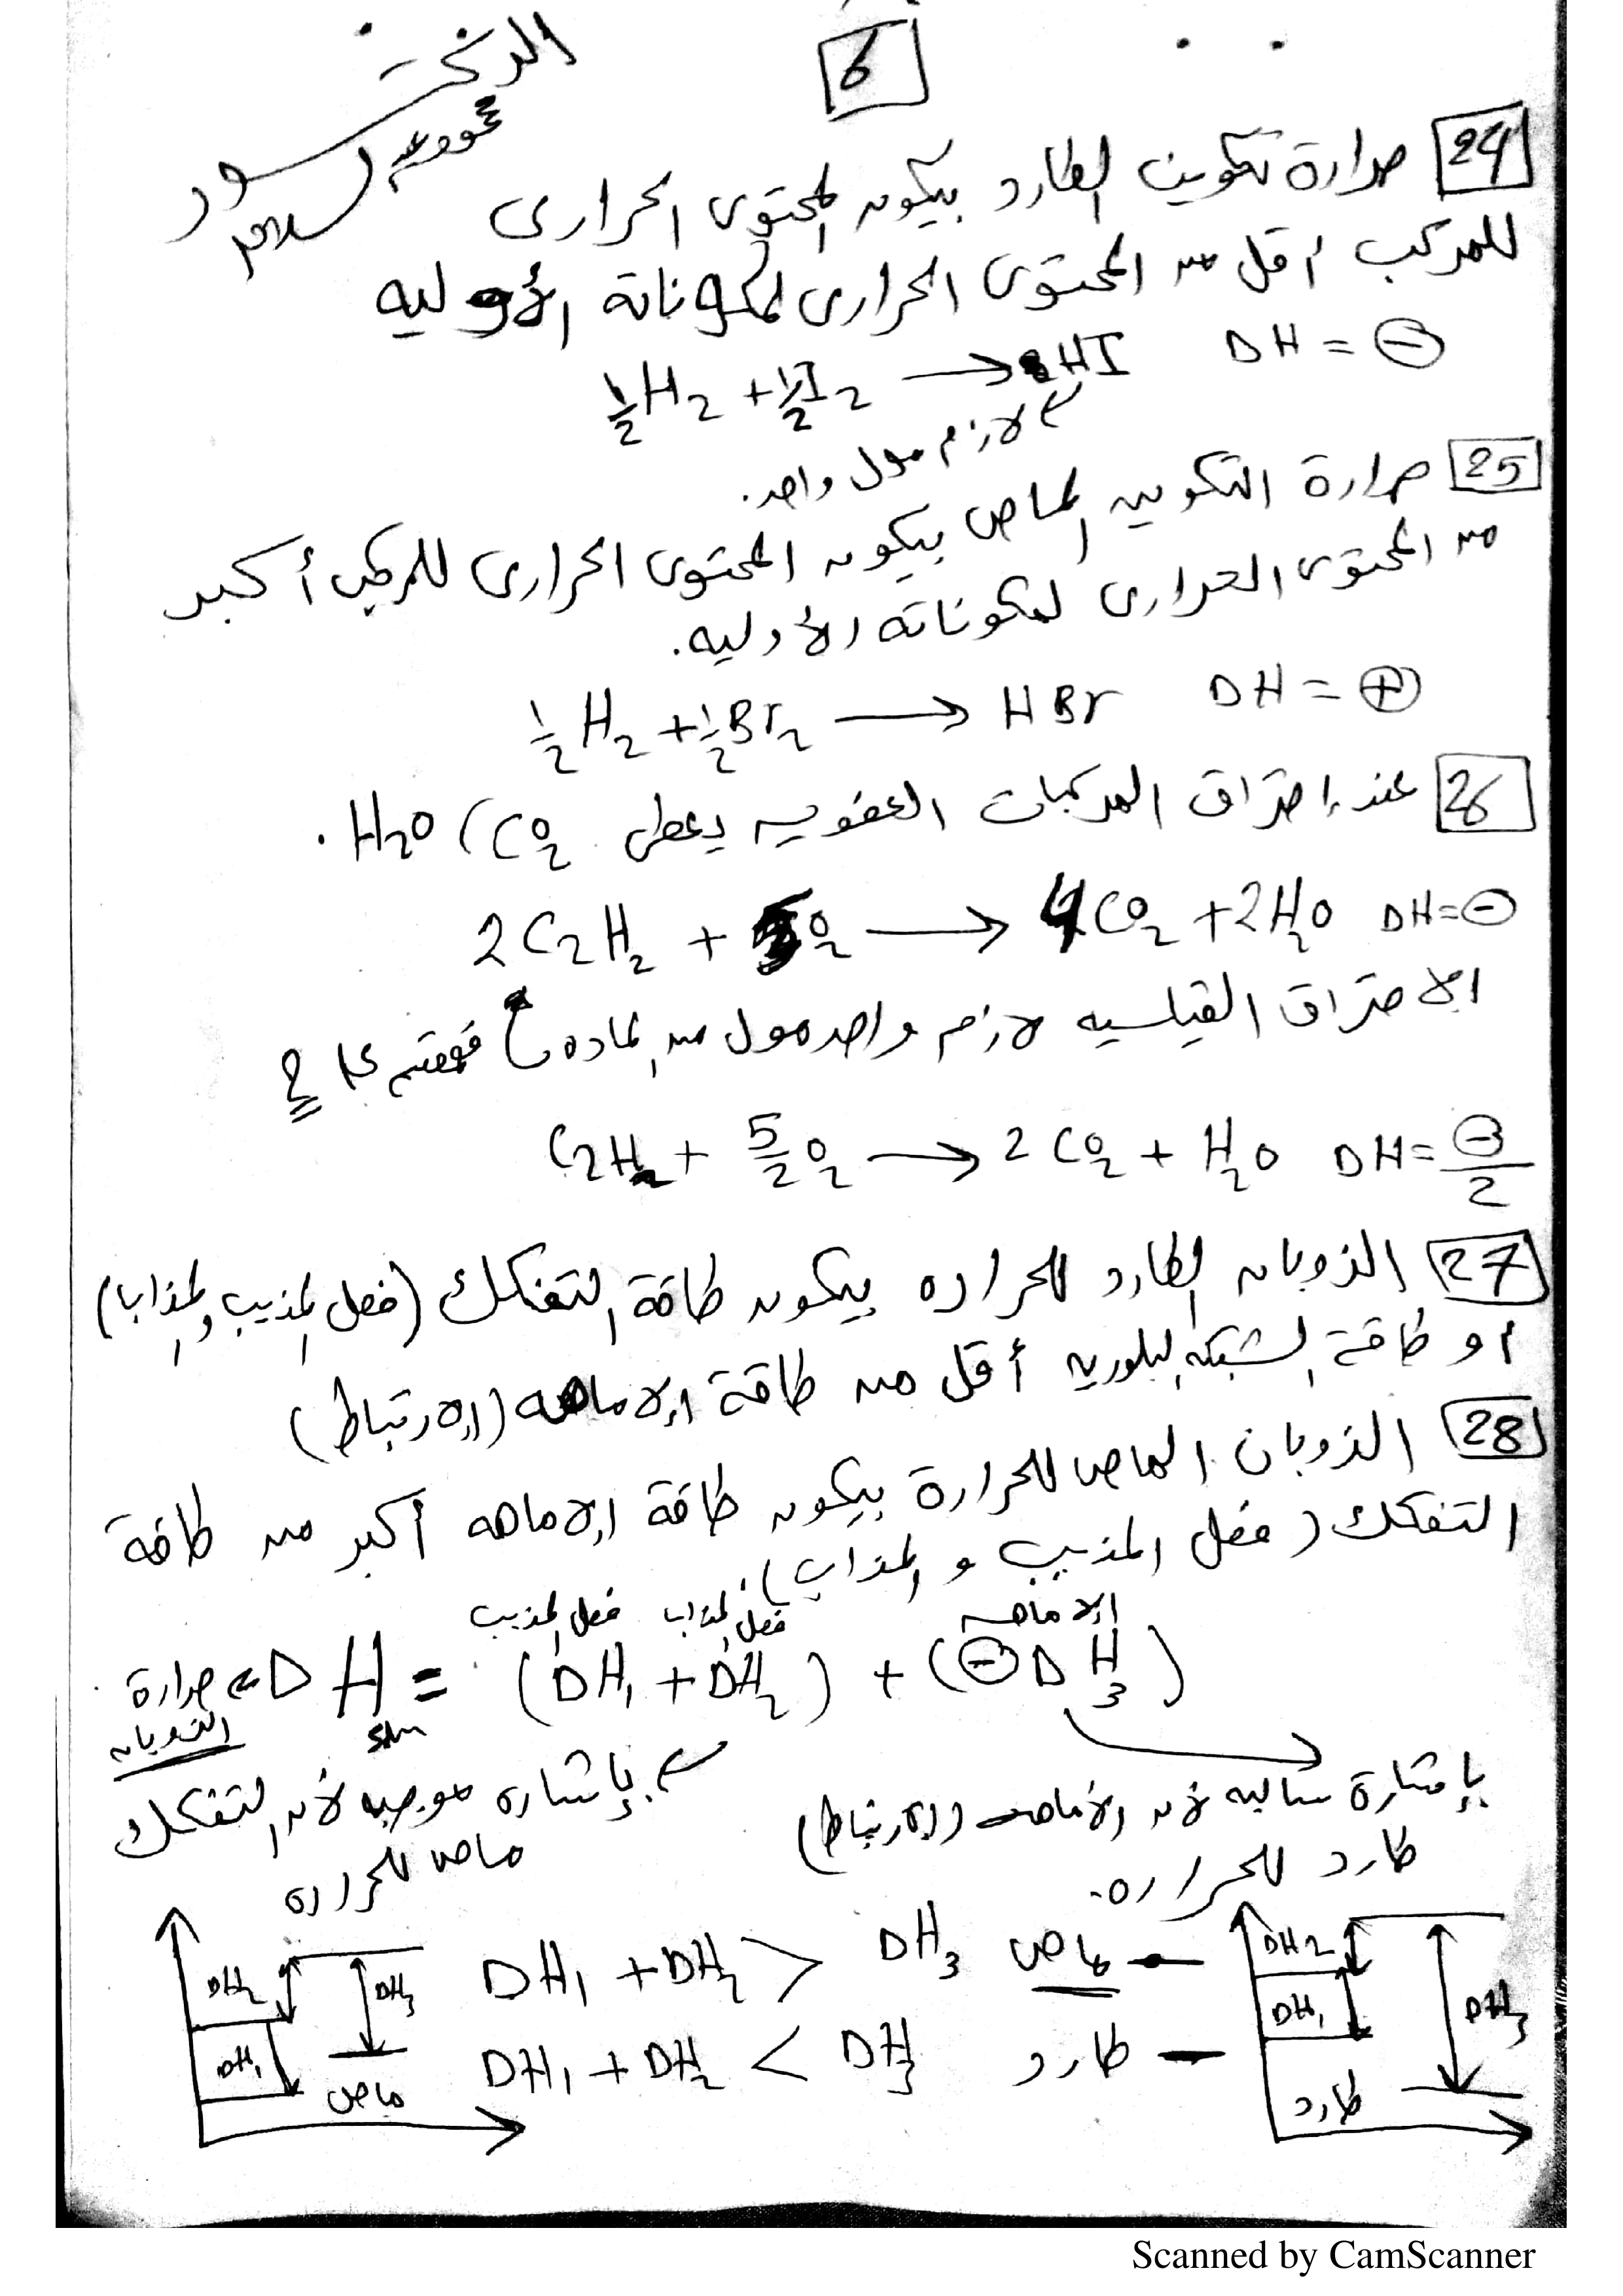 6
محمود عبدالسلام
24 حرارة تكوين الطارد بيكون المحتوى الحرارى
للمركب أقل من المحتوى الحرارى لمكوناتة الأوليه
½H2 + ½I2 → HI DH = ⊖
لازم مول واحد.
25 حرارة التكوين الماص بيكون المحتوى الحرارى للمركب أكبر
من المحتوى الحرارى لمكوناتة الأوليه.
½H2 + ½Br2 → HBr DH = ⊕
26 عند إحتراق المركبات العضويه يعطى CO2 ( H2O .
2C2H2 + 5O2 → 4CO2 + 2H2O DH=⊖
الاحتراق القياسيه لازم واحد مول من الماده علي 2
C2H2 + 5/2 O2 → 2CO2 + H2O DH=⊖/2
27 الذوبان الطارد للحراره بيكون طاقة التفكك (فصل المذيب والمذاب)
أو طاقة الشبكه البلوريه أقل من طاقة الاماهه (الارتباط)
28 الذوبان الماص للحرارة بيكون طاقة الاماهه أكبر من طاقة
التفكك (فصل المذيب و المذاب).
فصل المذيب فصل المذاب الاماهه
حرارة الذوبان DHsln = (DH1 + DH2) + (⊖DH3)
بإشاره موجبه لأن التفكك
ماص للحراره
بإشارة سالبه لأن الأماهه (الارتباط)
طارد للحراره.
DH1 + DH2 > DH3 ماص –
DH1 + DH2 < DH3 طارد –
DH2
DH1
DH3
ماص
DH2
DH1
DH3
طارد
Scanned by CamScanner